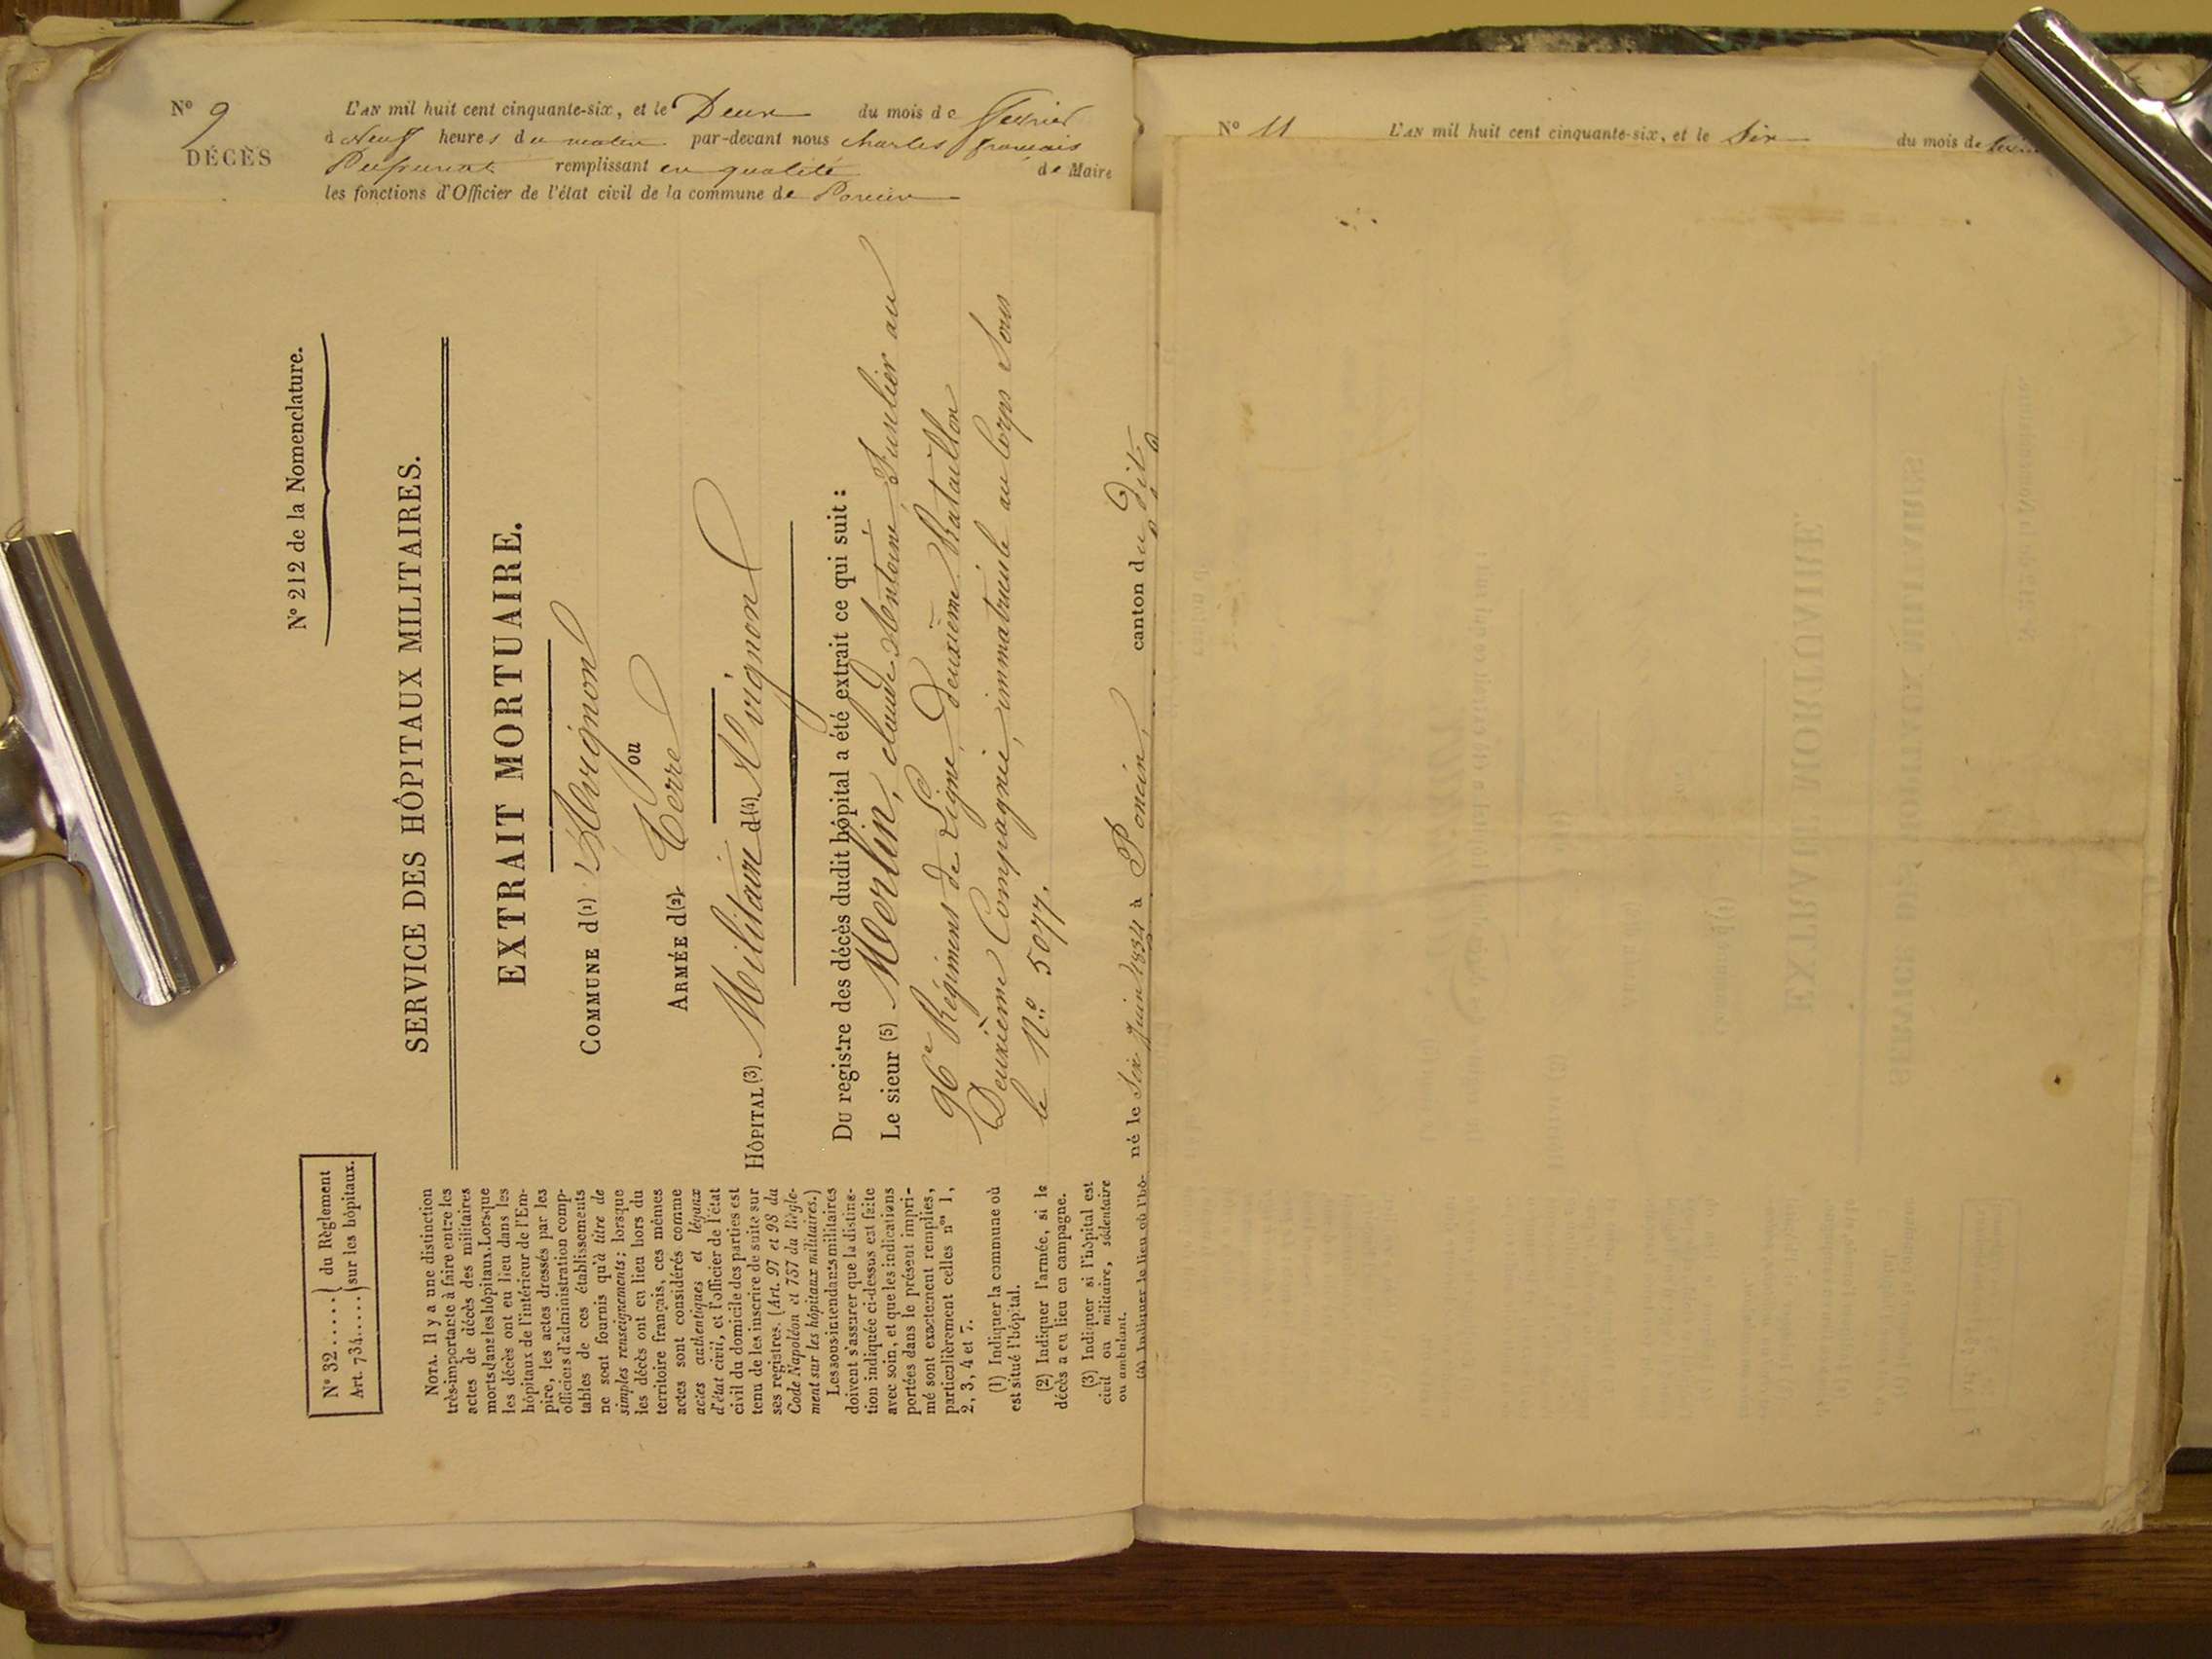 N° 9
DÉCÈS
L'AN mil huit cent cinquante-six, et le Deux du mois de fevrier
à Neuf heures du matin par-devant nous Charles françois
remplissant en qualité de Maire
les fonctions d'Officier de l'état civil de la commune de Poncin
N° 212 de la Nomenclature.
N° 32 ..... } du Règlement
Art. 734..... } sur les hôpitaux.
SERVICE DES HÔPITAUX MILITAIRES.
EXTRAIT MORTUAIRE.
COMMUNE d(1) 'Avignon
ou
ARMÉE d(2) Terre
HÔPITAL (3) Militaire d(4) Avignon
DU registre des décès dudit hôpital a été extrait ce qui suit :
Le sieur (5) Merlin, claude Antoine Fusilier au
96e Régiment de Ligne, Deuxième Bataillon
Deuxième Compagnie, immatricule au Corps Sous
le N.° 5077.
né le Six Juin 1834 à Poncin, canton du Dit
NOTA. Il y a une distinction
très-importante à faire entre les
actes de décès des militaires
morts dans les hôpitaux. Lorsque
les décès ont eu lieu dans les
hôpitaux de l'intérieur de l'Em-
pire, les actes dressés par les
officiers d'administration comp-
tables de ces établissements
ne sont fournis qu'à titre de
simples renseignements; lorsque
les décès ont eu lieu hors du
territoire français, ces mêmes
actes sont considérés comme
actes authentiques et légaux
d'état civil, et l'officier de l'état
civil du domicile des parties est
tenu de les inscrire de suite sur
ses registres. (Art. 97 et 98 du
Code Napoléon et 757 du Règle-
ment sur les hôpitaux militaires.)
Les sous-intendants militaires
doivent s'assurer que la distinc-
tion indiquée ci-dessus est faite
avec soin, et que les indications
portées dans le présent impri-
mé sont exactement remplies,
particulièrement celles nos 1,
2, 3, 4 et 7.
(1) Indiquer la commune où
est situé l'hôpital.
(2) Indiquer l'armée, si le
décès a eu lieu en campagne.
(3) Indiquer si l'hôpital est
civil ou militaire, sédentaire
ou ambulant.
(4) Indiquer le lieu où l'hô-
N° 11
L'AN mil huit cent cinquante-six, et le Six du mois de